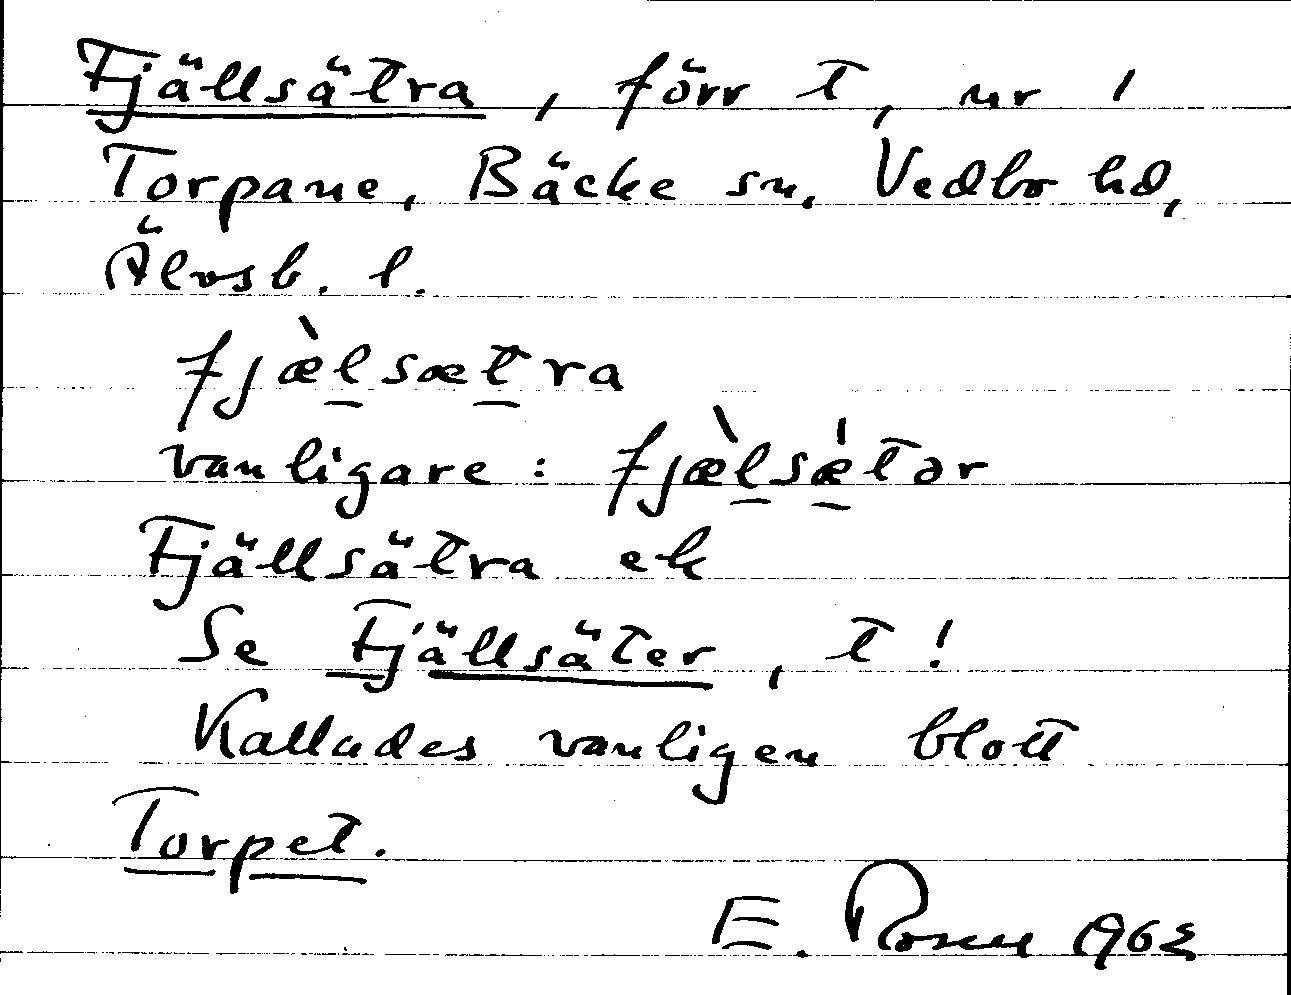 Fjällsätra, förr t, nr 1
Torpane, Bäcke sn, Vedbo hd,
Älvsb. l.
fjæ̀l̲sæt̲ra
vanligare: fjæ̀l̲sæ̲̍tər
Fjällsätra ek
Se Fjällsäter, t!
Kallades vanligen blott
Torpet.
E. Rosell 1962